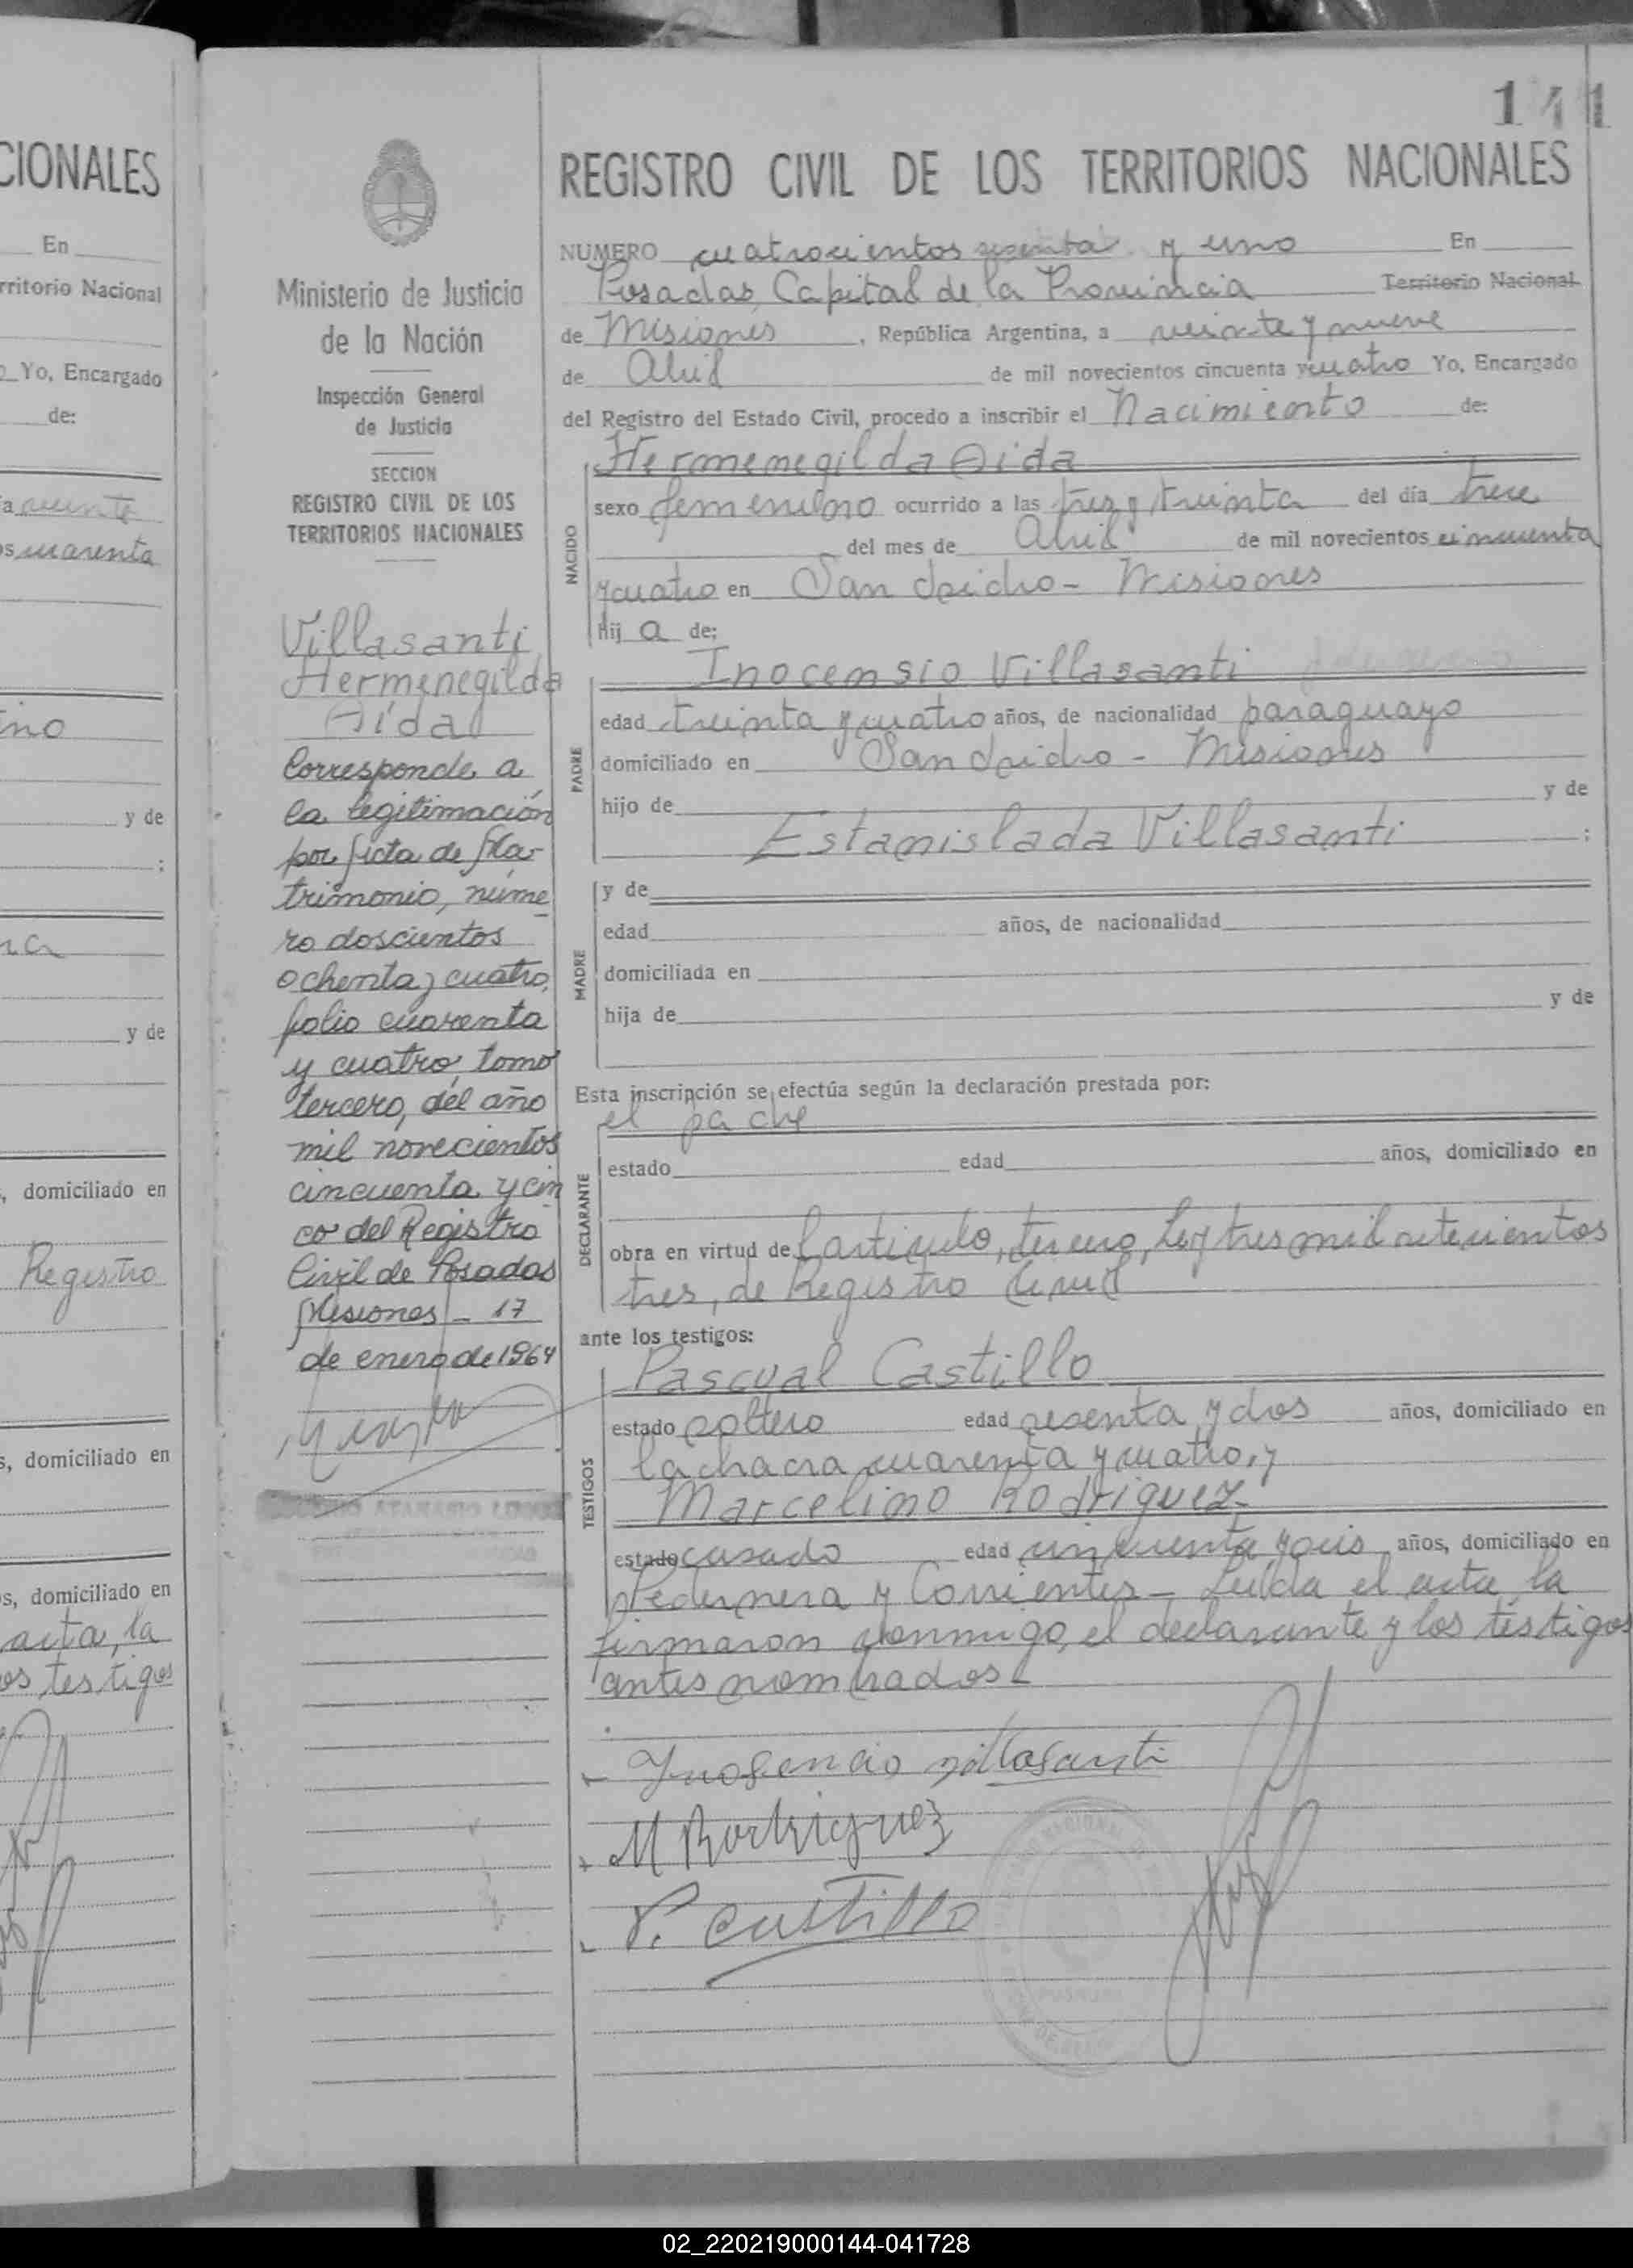 CIONALES
En
rritorio Nacional
Yo, Encargado
de:
a veinte
os cuarenta
ino
y de
;
na
y de
, domiciliado en
Registro
s, domiciliado en
s, domiciliado en
acta, la
os testigos
141
REGISTRO CIVIL DE LOS TERRITORIOS NACIONALES
Ministerio de Justicia
de la Nación
Inspección General
de Justicia
SECCION
REGISTRO CIVIL DE LOS
TERRITORIOS NACIONALES
Villasanti
Hermenegilda
Aída
Corresponde a
la legitimación
por Acta de Ma-
trimonio, núme
ro doscientos
ochenta y cuatro,
folio cuarenta
y cuatro, tomo
tercero, del año
mil novecientos
cincuenta y cin
co del Registro
Civil de Posadas
Misiones - 17
de enero de 1964
NUMERO cuatrocientos y uno En
Posadas, Capital de la Provincia Territorio Nacional
de Misiones, República Argentina, a veinte y nueve
de Abril de mil novecientos cincuenta y cuatro Yo, Encargado
del Registro del Estado Civil, procedo a inscribir el Nacimiento de:
NACIDO
Hermenegilda Aida
sexo femenino ocurrido a las tres y treinta del día trece
del mes de Abril de mil novecientos cincuenta
y cuatro en San Isidro - Misiones
hij a de:
PADRE
Inocensio Villasanti
edad treinta y cuatro años, de nacionalidad paraguayo
domiciliado en San Isidro - Misiones
hijo de y de
Estanislada Villasanti ;
MADRE
y de
edad años, de nacionalidad
domiciliada en
hija de y de
Esta inscripción se efectúa según la declaración prestada por:
DECLARANTE
el padre
estado edad años, domiciliado en
obra en virtud del artículo, tercero, Ley tres mil setecientos
tres, de Registro Civil
ante los testigos:
TESTIGOS
Pascual Castillo
estado soltero edad sesenta y dos años, domiciliado en
la chacra cuarenta y cuatro, y
Marcelino Rodriguez-
estado casado edad cincuenta y seis años, domiciliado en
Pedernera y Corrientes - Leída el acta, la
firmaron conmigo, el declarante y los testigos
antes nombrados-
Inosencio villasanti
M Rodriguez
P. Castillo
02_220219000144-041728